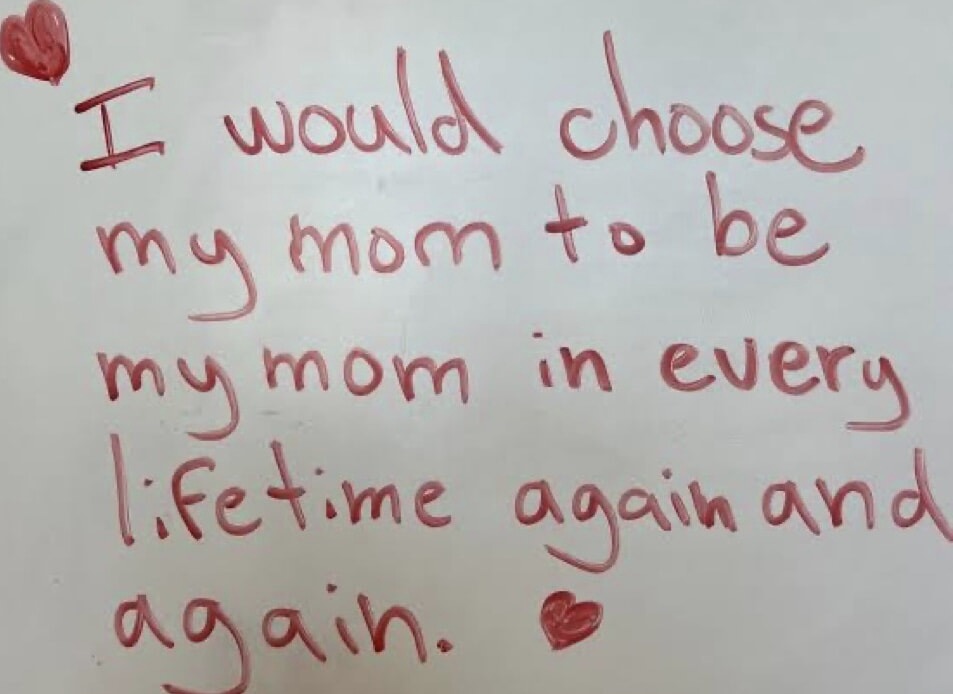 I would choose
my mom to be
my mom in every
lifetime again and
again.